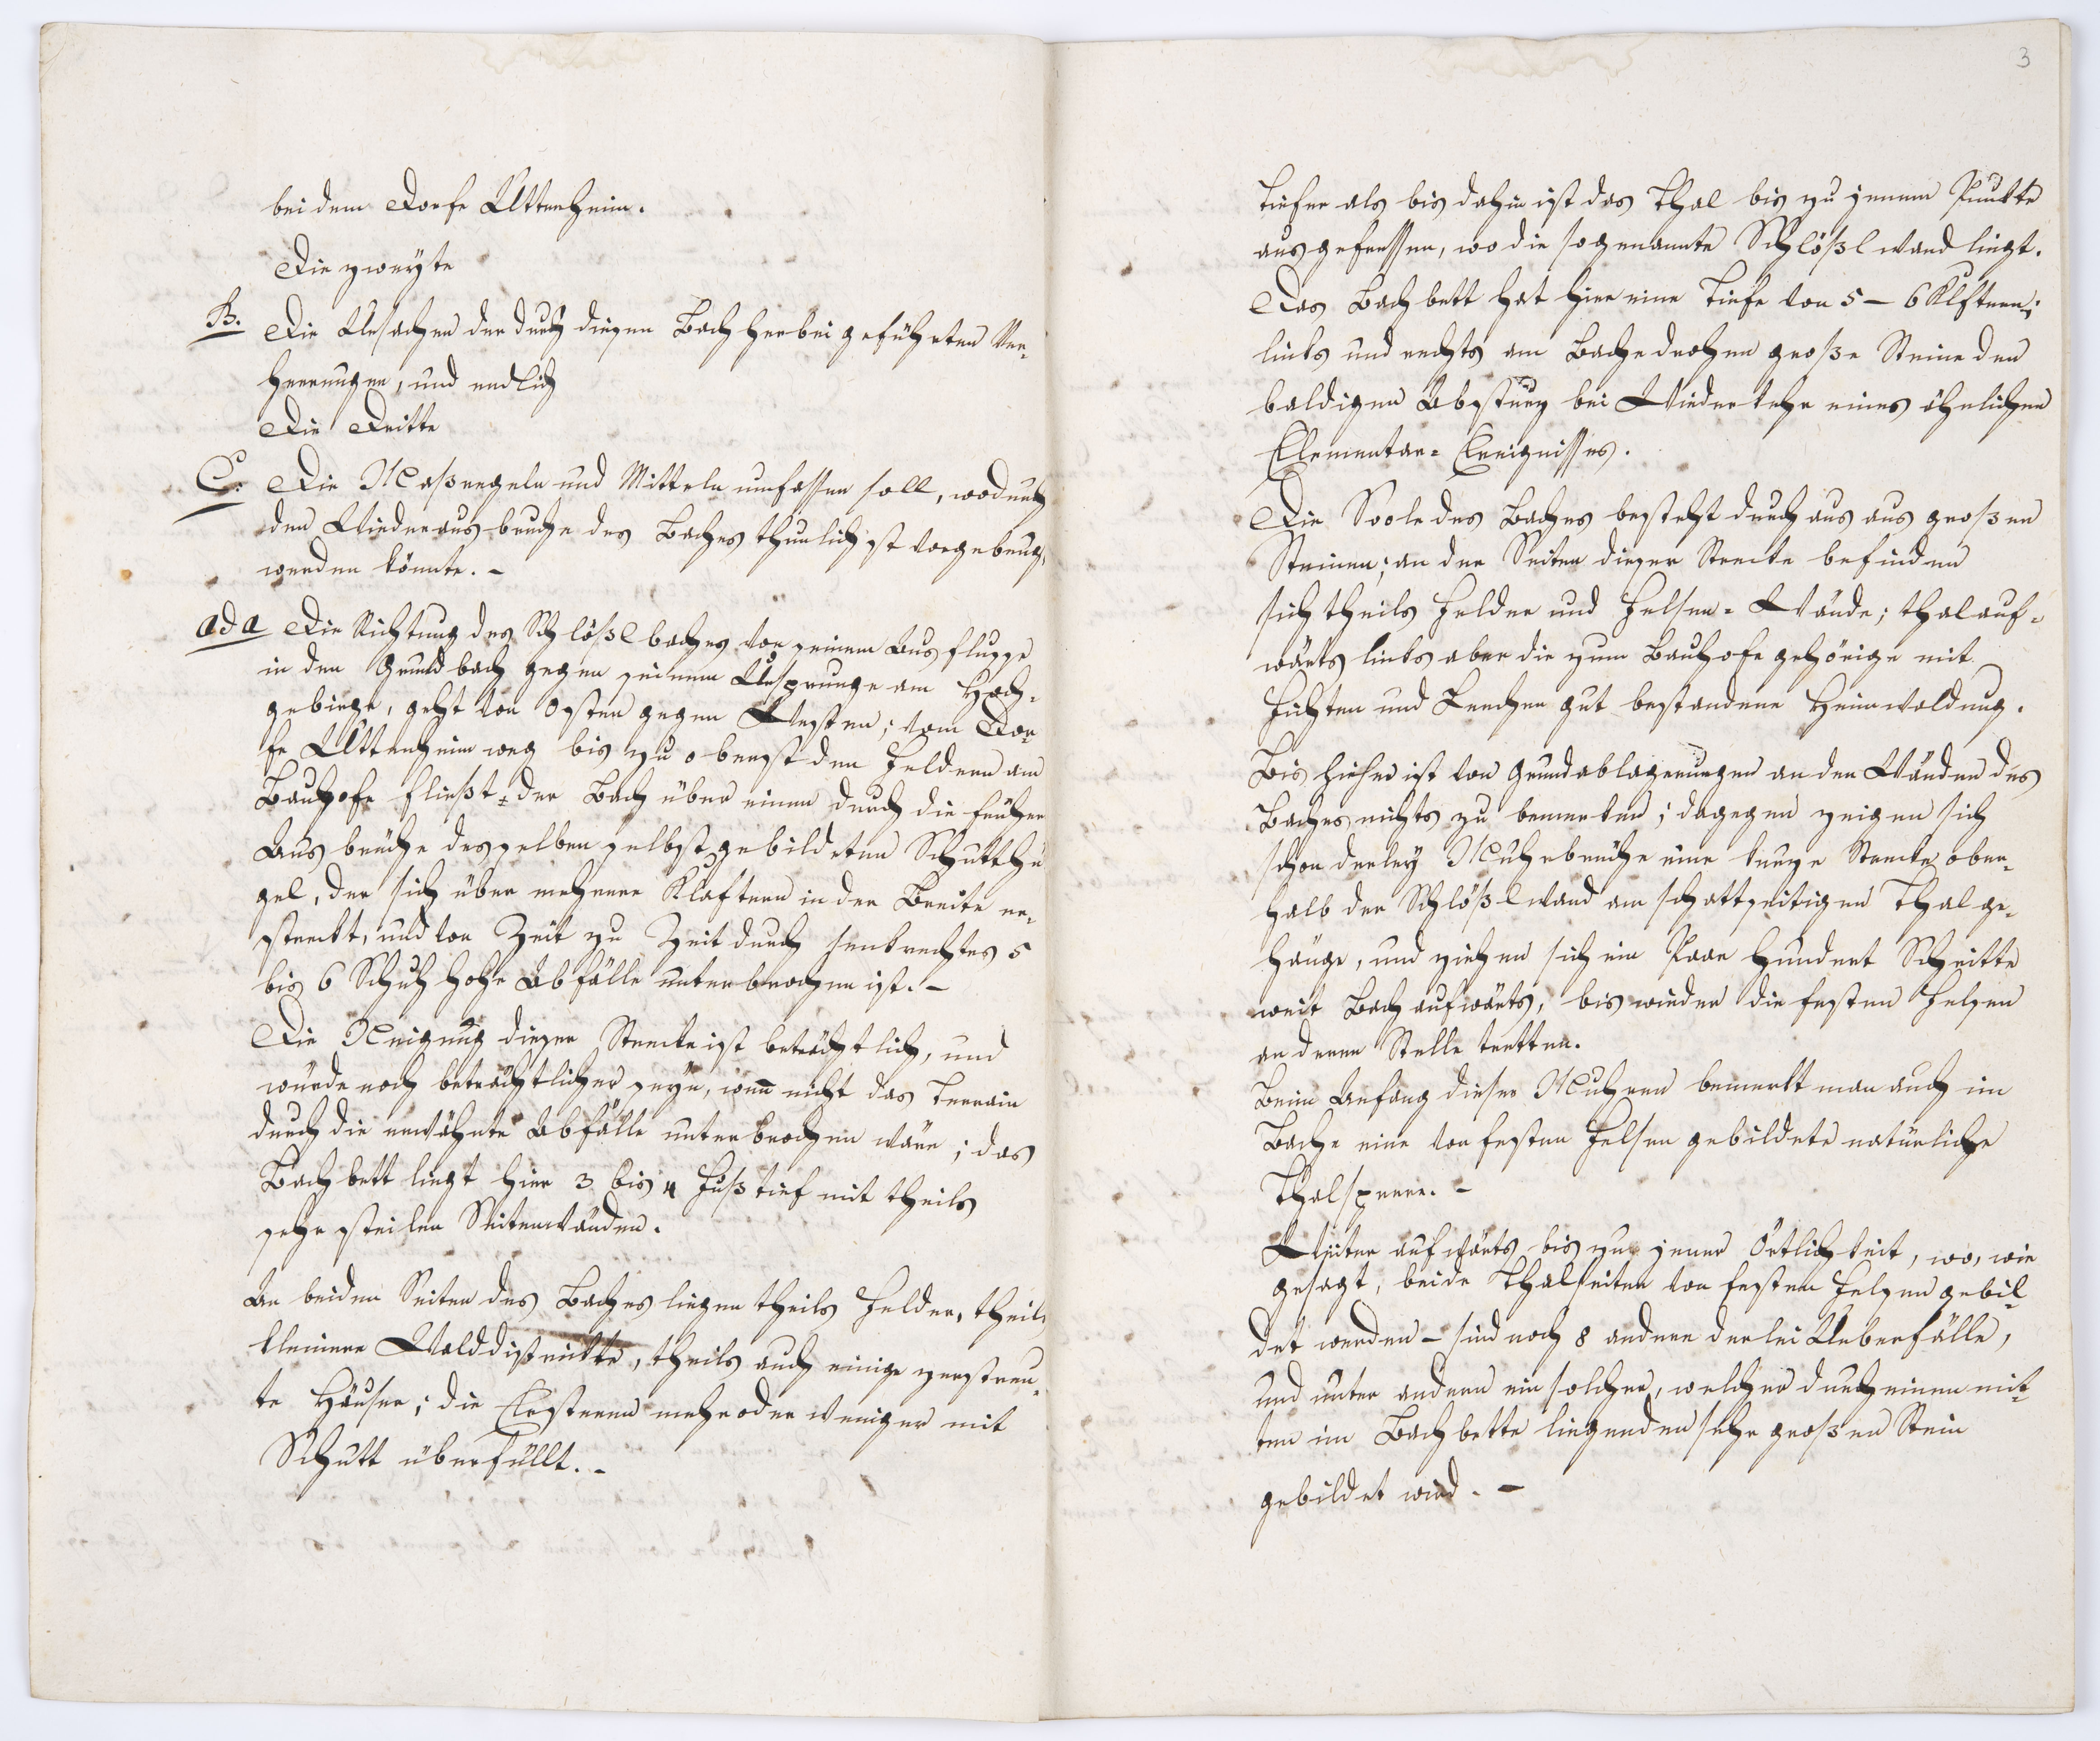 bei dem Dorfe Uttenheim.
Die zweyte
B. Die Ursachen der durch diesen Bach herbei geführten Ver-
heerungen, und endlich
Die Dritte
C. Die Maßregeln und Mitteln umfassen soll, wodurch
den Wiederausbruche des Baches thunlichst vorgebeugt
werden könnte. -
ad a Die Richtung des Schlößlbaches von seinem Ausflusse
in den Grundbach gegen seinem Ursprunge am Hoch-
gebirge, geht von Osten gegen Westen; vom Dor-
fe Uttenheim weg bis zu oberst den Feldern am
Bauhofe fließt der Bach über einen durch die früher
Ausbrüche desselben selbst gebildeten Schutthü
gel, der sich über mehrere Klaftern in der Breite er-
streckt, und von Zeit zu Zeit durch senkrechtes 5
bis 6 Schuh hohe Abfälle unterbrochen ist. -
Die Neigung dieser Strecke ist beträchtlich, und
würde noch beträchtlicher seyn, wenn nicht das Terrain
durch die erwähnte Abfälle unterbrochen wäre; das
Bachbett liegt hier 3 bis 4 Fuß tief mit theils
sehr steilen Seitenwänden.
An beiden Seiten des Baches liegen theils Felder, theils
kleinere Walddistrickte, theils auch einige zerstreu-
te Häuser; die Ersteren mehr oder weniger mit
Schutt überfüllt. -
3
Tiefer als bis dahin ist das Thal bis zu jenem Punkte
ausgefressen, wo die sogenannte Schlößlwand liegt.
Das Bachbett hat hier eine Tiefe von 5 - 6 Klftern;
links und rechts am Bache drohen große Steine den
baldigen Absturz bei Wiederkehr eines ähnlichen
Elementar-Ereignisses.
Die Soole des Baches besteht durchaus aus großen
Steinen; an der Seiten dieser Strecke befinden
sich theils Felder und Felsen-Wände; thalauf-
wärts links aber die zum Bauhofe gehörige mit
Fichten und Lerchen gut bestandene Heimwaldung.
Bis hieher ist von Grundablagerungen an den Wänden des
Baches nichts zu bemerken; dagegen zeigen sich
schon derley Muhrbrüche eine kurze Strecke ober-
halb der Schlößlwand am schattseitigen Thalge-
hänge, und ziehen sich ein Paar Hundert Schritte
weit Bach aufwärts, bis wieder die festen Felsen
an deren Stelle tretten.
Beim Anfang dieser Muhren bemerkt man auch im
Bache eine von festen Felsen gebildete natürliche
Thalsperre. -
Weiter aufwärts bis zu jener Örtlichkeit, wo, wie
gesagt, beide Thalseiten von festen Felsen gebil-
det werden - sind noch 8 andere derlei Ueberfälle,
und unter andern ein solcher, welcher durch einen mit-
ten im Bachbette liegenden sehr großen Stein
gebildet wird. -